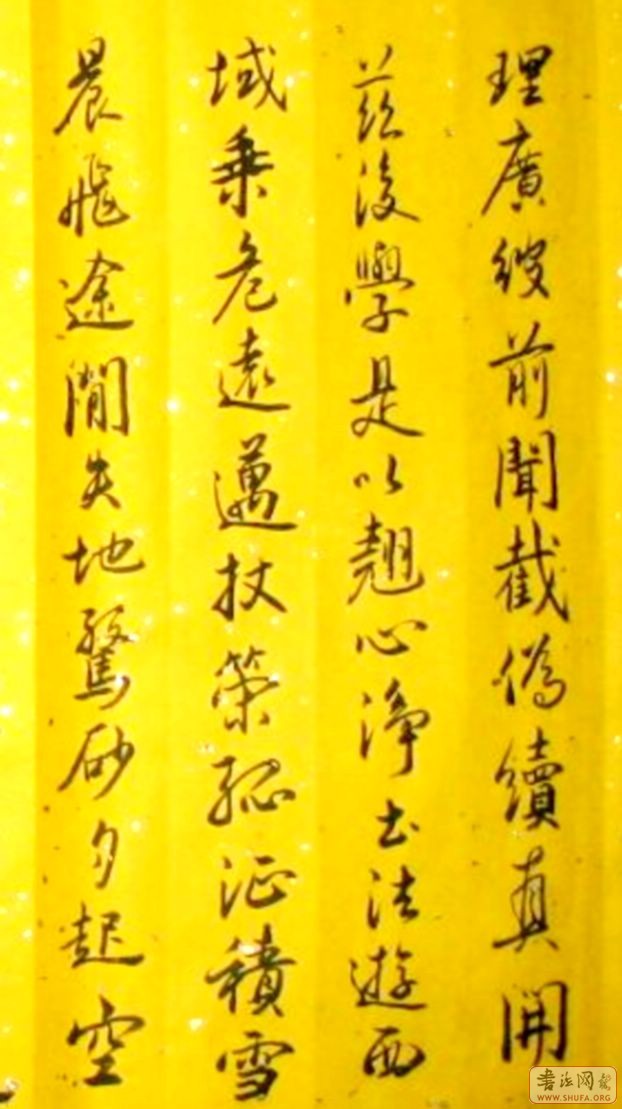 理廣彼前聞截偽續真開
茲後學是以翹心淨土法遊西
域乗危遠邁杖策孤征積雪
晨飛途閒失地驚砂夕起空
書法网
WWW.SHUFA.ORG